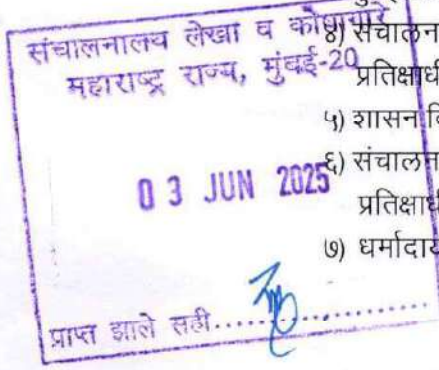 संचालनालय लेखा व कोषागारे
महाराष्ट्र राज्य, मुंबई-20
03 JUN 2025
प्राप्त झाले सही
४) संचालन
प्रतिक्षाधी
५) शासन
६) संचालन
प्रतिक्षाधी
७) धर्मादाय